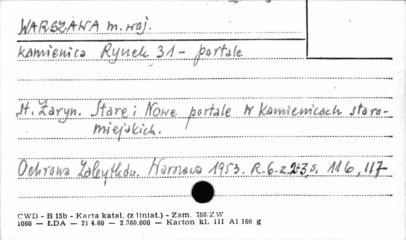 WARSZAWA m. woj.
Kamienica Rynek 31 - portale
St. Żaryn. Stare i Nowe portale w kamienicach staro-
miejskich.
Ochrona Zabytków. Warszawa 1953. R. 6. z. 2-3, s. 116, 117
CWD - B 15b - Karta katal. (z liniat.) - Zam. 788/ZW
1060 — ŁDA — 21 4.60 — 2.360.000 — Karton kl. III A1 160 g